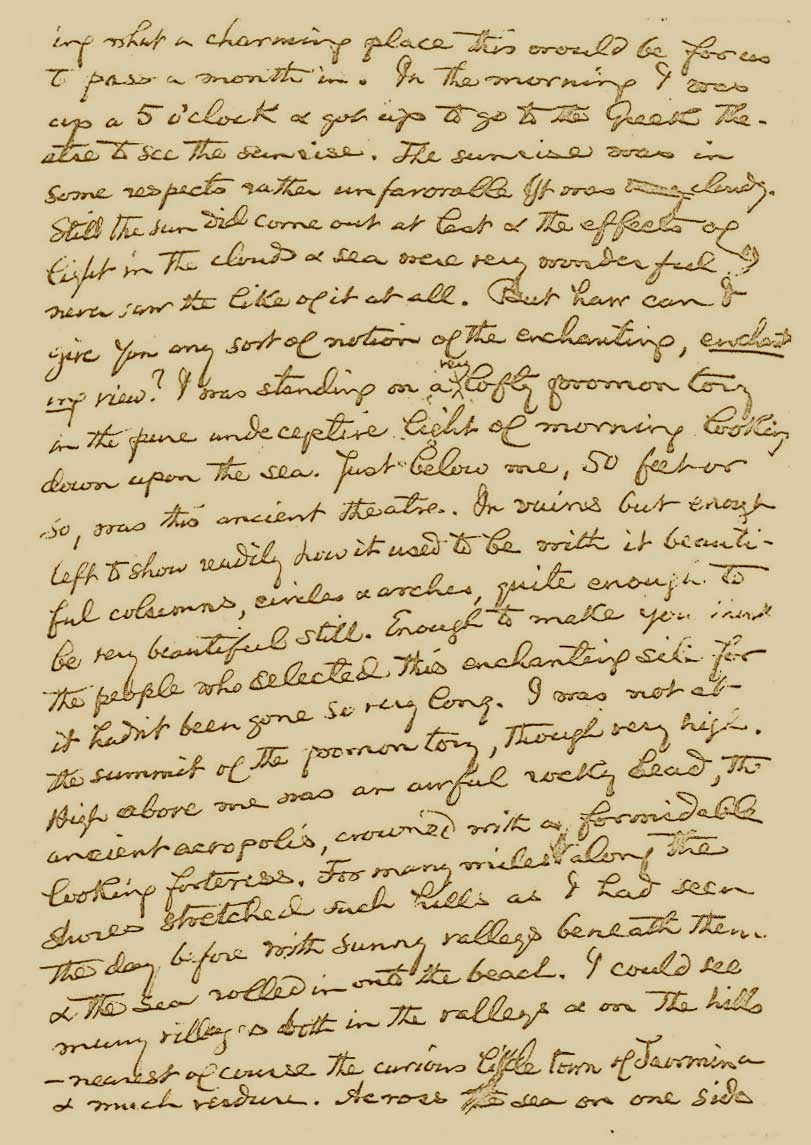 ing what a charming place this would be for us
to pass a month in. In the morning I was
up a 5 o'clock & got up to go to the Greek The-
atre to see the sunrise. The sunrise was in
some respects rather unfavorable It was cloudy.
Still the sun did come out at last & the effects of
light in the clouds & sea were very wonderful I
never saw the like of it at all. But how can I
give you any sort of notion of the enchanting, enchant
ing view? I was standing on a very lofty promontory
in the pure undeceptive light of morning looking
down upon the sea. Just below me, 50 feet or
so, was this ancient theatre. In ruins but enough
left to show readily how it used to be with it beauti-
ful columns, circles & arches, quite enough to
be very beautiful still. Enough to make you
the people who selected this enchanting site for
it hadn't been gone so very long. I was not at
the summit of the promontory, though very high.
High above me was an awful rocky head, the
ancient acropolis, crowned with a formidable
looking forteress. For many miles along the
shores stretched such hills as I had seen
the day before with sunny valleys beneath them
& the sea rolled in onto the beach. I could see
many villages both in the valleys & on the hills
- nearest of course the curious little town of Taormina
& much verdure. Across the sea on one side